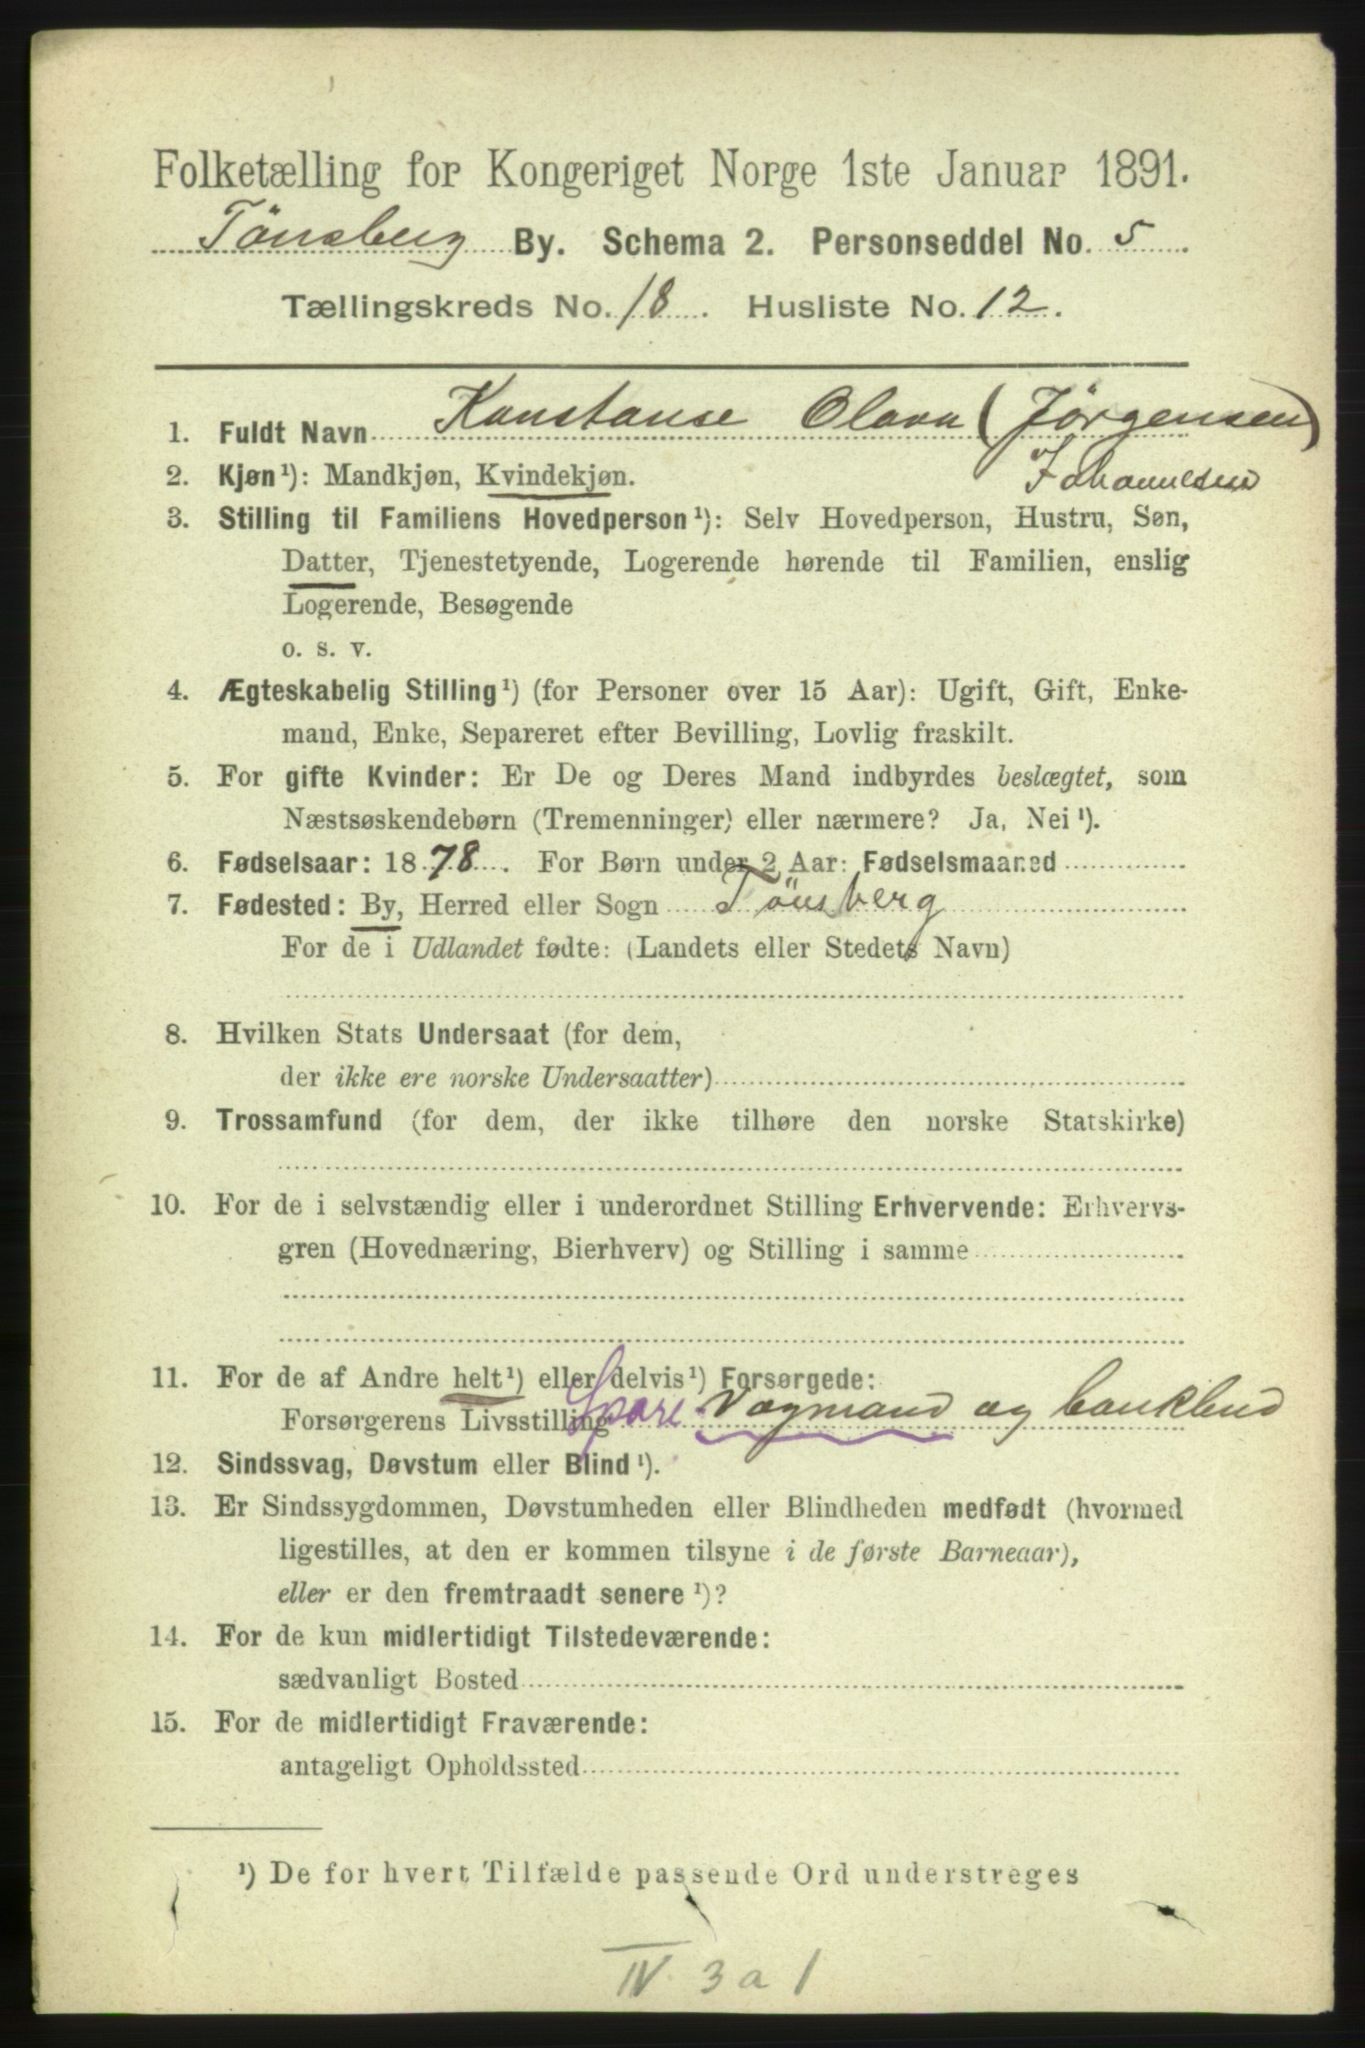 Folketælling for Kongeriget Norge 1ste Januar 1891.
Tönsberg By. Schema 2. Personseddel No. 5
Tællingskreds No. 18. Husliste No. 12.
1. Fuldt Navn Konstanse Olava (Jörgensen)
Johannesen
2. Kjøn¹): Mandkjøn, Kvindekjøn.
3. Stilling til Familiens Hovedperson¹): Selv Hovedperson, Hustru, Søn,
Datter, Tjenestetyende, Logerende hørende til Familien, enslig
Logerende, Besøgende
o. s. v.
4. Ægteskabelig Stilling¹) (for Personer over 15 Aar): Ugift, Gift, Enke-
mand, Enke, Separeret efter Bevilling, Lovlig fraskilt.
5. For gifte Kvinder: Er De og Deres Mand indbyrdes beslægtet, som
Næstsøskendebørn (Tremenninger) eller nærmere? Ja, Nei¹).
6. Fødselsaar: 1878. For Børn under 2 Aar: Fødselsmaaned
7. Fødested: By, Herred eller Sogn Tönsberg
For de i Udlandet fødte: (Landets eller Stedets Navn)
8. Hvilken Stats Undersaat (for dem,
der ikke ere norske Undersaatter)
9. Trossamfund (for dem, der ikke tilhøre den norske Statskirke)
10. For de i selvstændig eller i underordnet Stilling Erhvervende: Erhvervs-
gren (Hovednæring, Bierhverv) og Stilling i samme
11. For de af Andre helt¹) eller delvis¹) Forsørgede:
Forsørgerens Livsstilling Spare Vagmand og bankbud
12. Sindssvag, Døvstum eller Blind¹).
13. Er Sindssygdommen, Døvstumheden eller Blindheden medfødt (hvormed
ligestilles, at den er kommen tilsyne i de første Barneaar),
eller er den fremtraadt senere¹)?
14. For de kun midlertidigt Tilstedeværende:
sædvanligt Bosted
15. For de midlertidigt Fraværende:
antageligt Opholdssted
¹) De for hvert Tilfælde passende Ord understreges
IV. 3 a 1